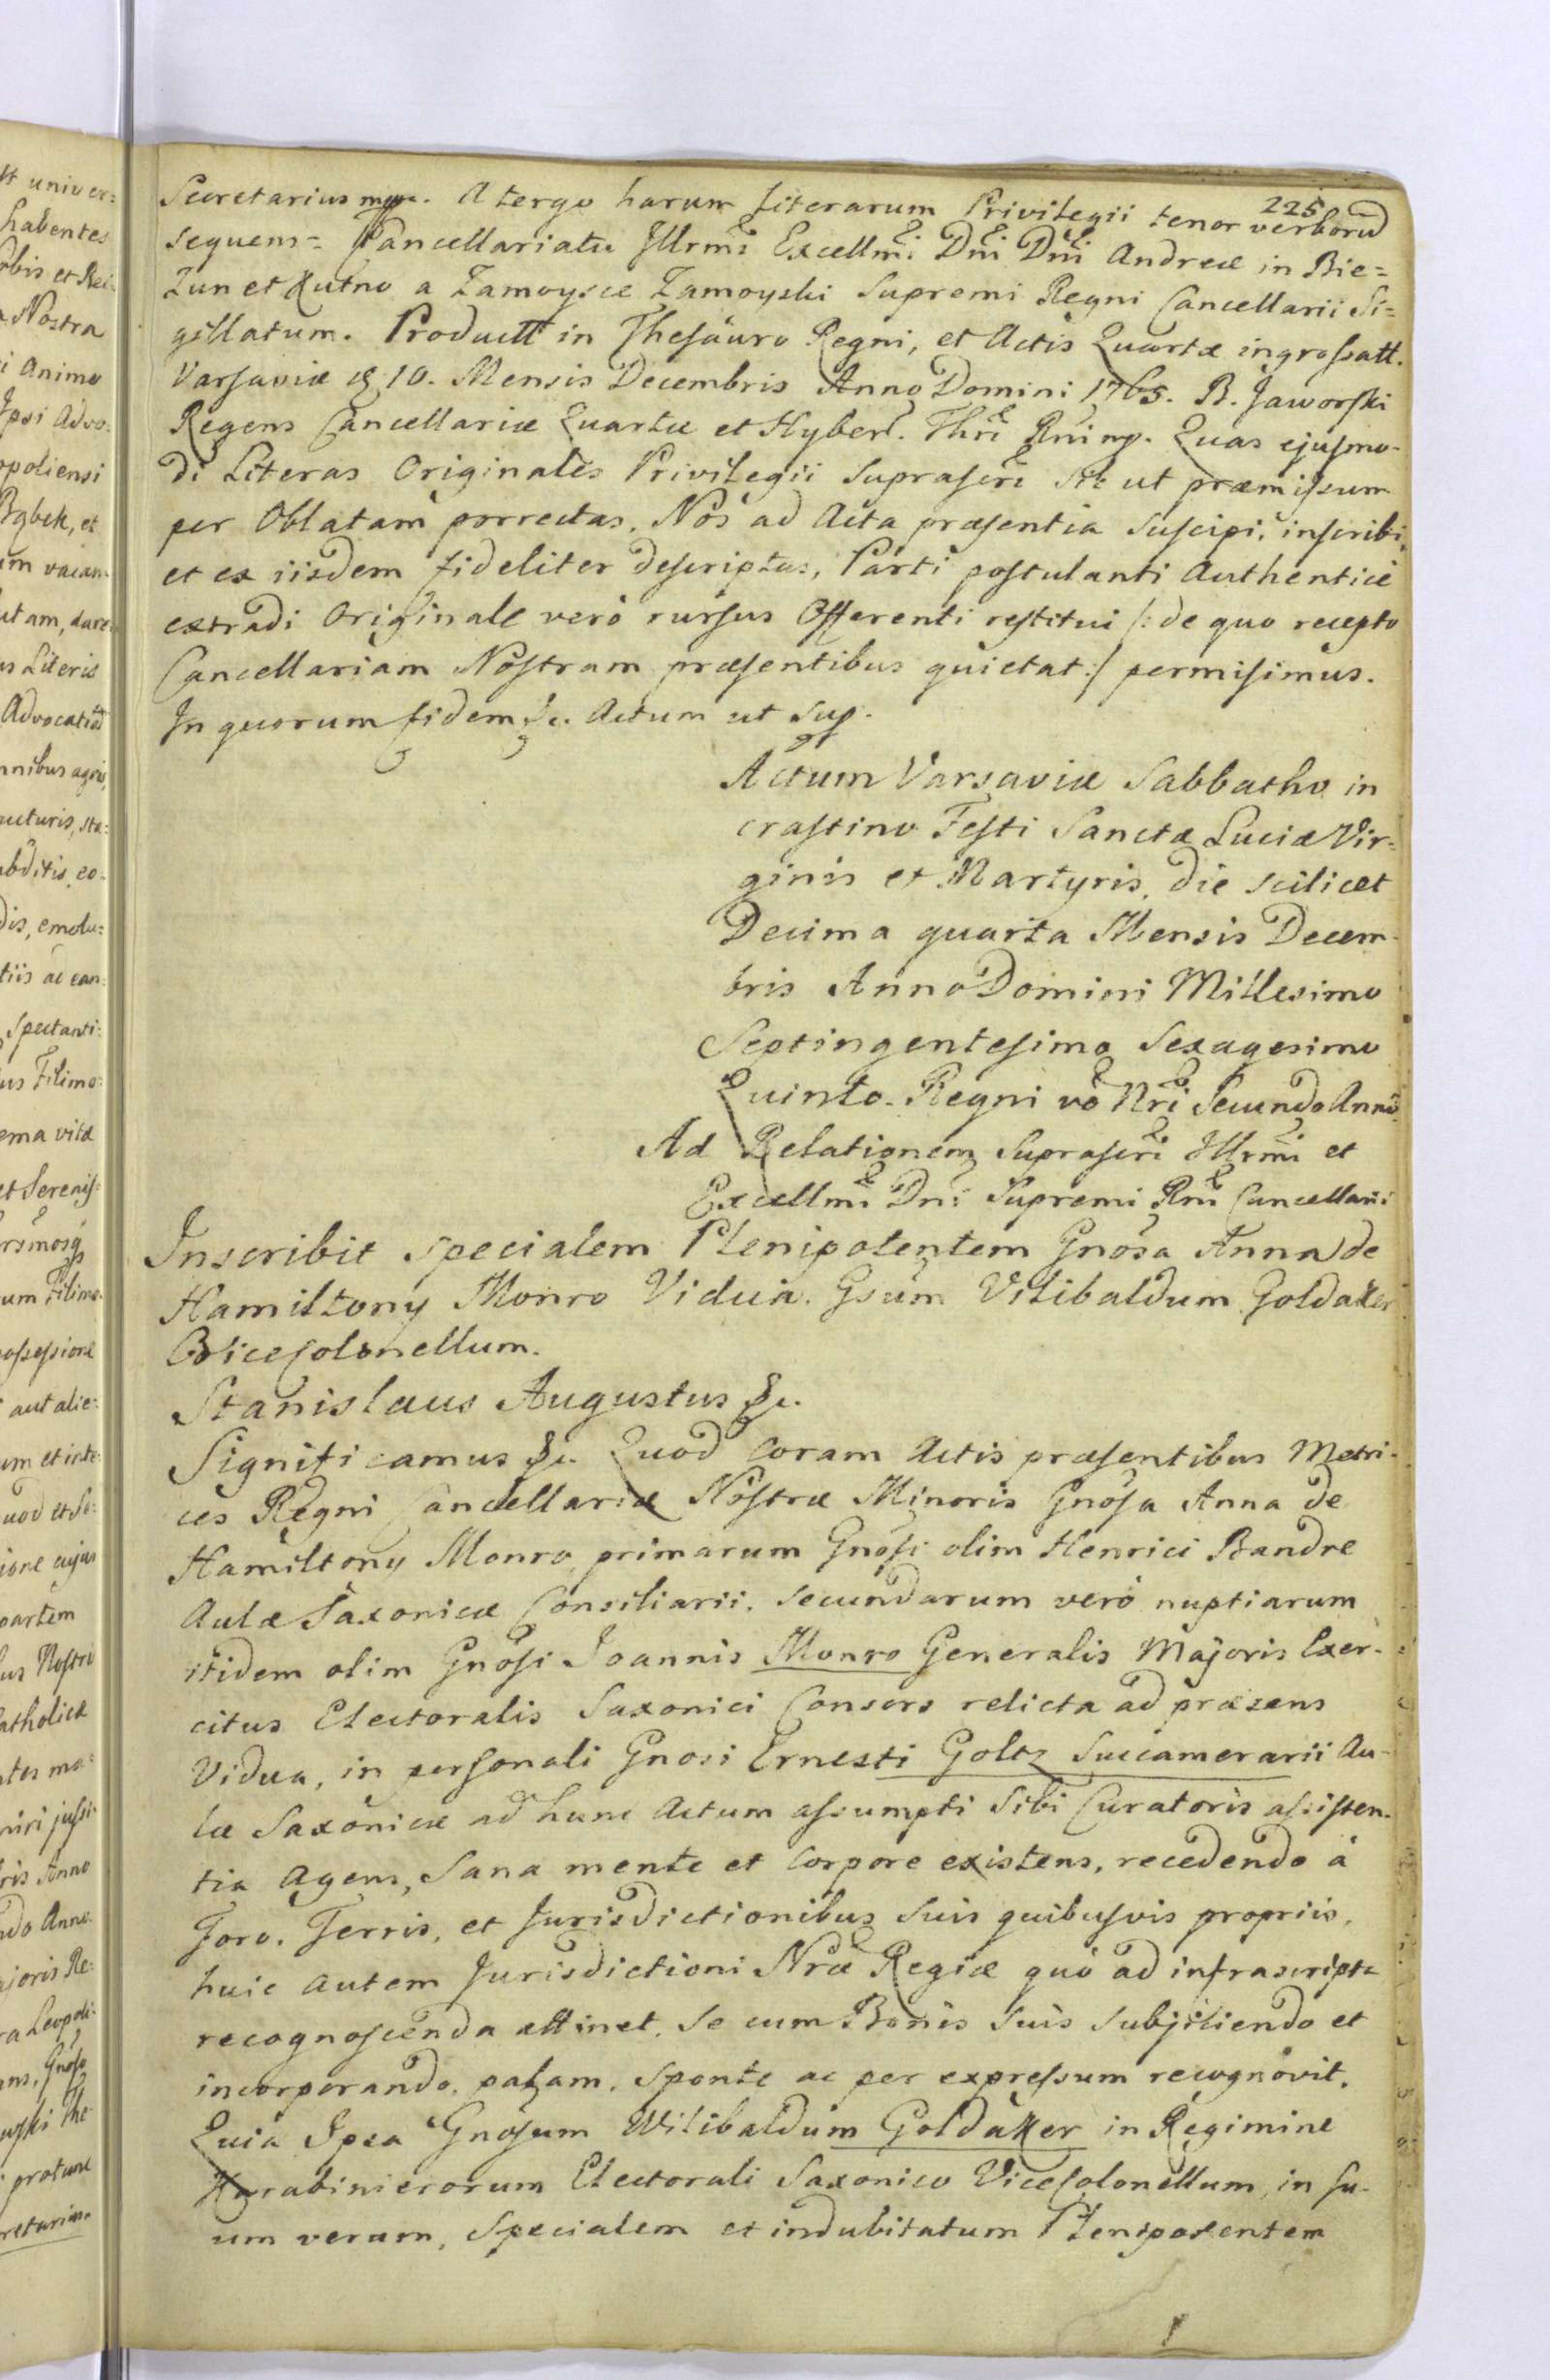 225
Secretarius mppa. A tergo harum Literarum Privilegii tenor verborũ
sequens= Cancellariatu Illrmi Excellmi Dni Dni Andreæ in Bie=
Zun et Kutno a Zamoysce Zamoyski Supremi Regni Cancellarii Si=
gillatum. Product in Thesauro Regni, et Actis Quartæ ingrossatt.
Varsaviæ d. 10. Mensis Decembris Anno Domini 1765. B. Jaworski
Regens Cancellariæ Quartæ et Hyber. Thri Rni mp. Quas ejusmo-
di Literas Originales Privilegii Suprascri Sic ut præmissum
per Oblatam porrectas, Nos ad Acta præsentia suscipi, inscribi,
et ex iisdem fideliter descriptas, Parti postulanti Authentice
extradi Originale vero rursus Offerenti restitui /: de quo recepto
Cancellariam Nostram præsentibus quietat :/ permisimus.
In quorum fidem &c. Actum ut sup.
Actum Varsaviæ Sabbatho in
crastino Festi Sanctæ Luciæ Vir=
ginis et Martyris, die scilicet
Decima quarta Mensis Decem-
bris Anno Domini Millesimo
Septingentesimo Sexagesimo
Quinto. Regni vo Nri Secundo Anno
Ad Relationem Suprascri Illrmi et
Excellmi Dni Supremi Rni Cancellarii
Inscribit specialem Plenipotentem Gnosa Anna de
Hamiltony Monro Vidua. Gsum Vilibaldum Goldaker
ViceColonellum.
Stanislaus Augustus &c.
Significamus &c. Quod Coram Actis præsentibus Metri-
ces Regni Cancellariæ Nostræ Minoris Gnosa Anna de
Hamiltony Monro, primarum Gnosi olim Henrici Bandre
Aulæ Saxonicæ Consiliarii, Secundarum vero nuptiarum
itidem olim Gnosi Joannis Monro Generalis Majoris Exer-
citus Electoralis Saxonici Consors relicta ad præsens
Vidua, in personali Gnosi Ernesti Goltz Succamerarii Au-
læ Saxonicæ ad hunc Actum assumpti Sibi Curatoris assisten-
tia Agens, Sana mente et Corpore existens, recedendo a
Foro, Terris, et Jurisdictionibus Suis quibusvis propriis,
huic autem Jurisdictioni Nræ Regiæ quo ad infrascripta
recognoscenda attinet, Se cum Bonis Suis Subjiciendo et
incorporando, palam, sponte ac per expressum recognovit,
Quia Ipsa Gnosum Wilibaldum Goldakker in Regimine
Karabinierorum Electorali Saxonico ViceColonellum, in su-
um verum, Specialem et indubitatum Plenipotentem